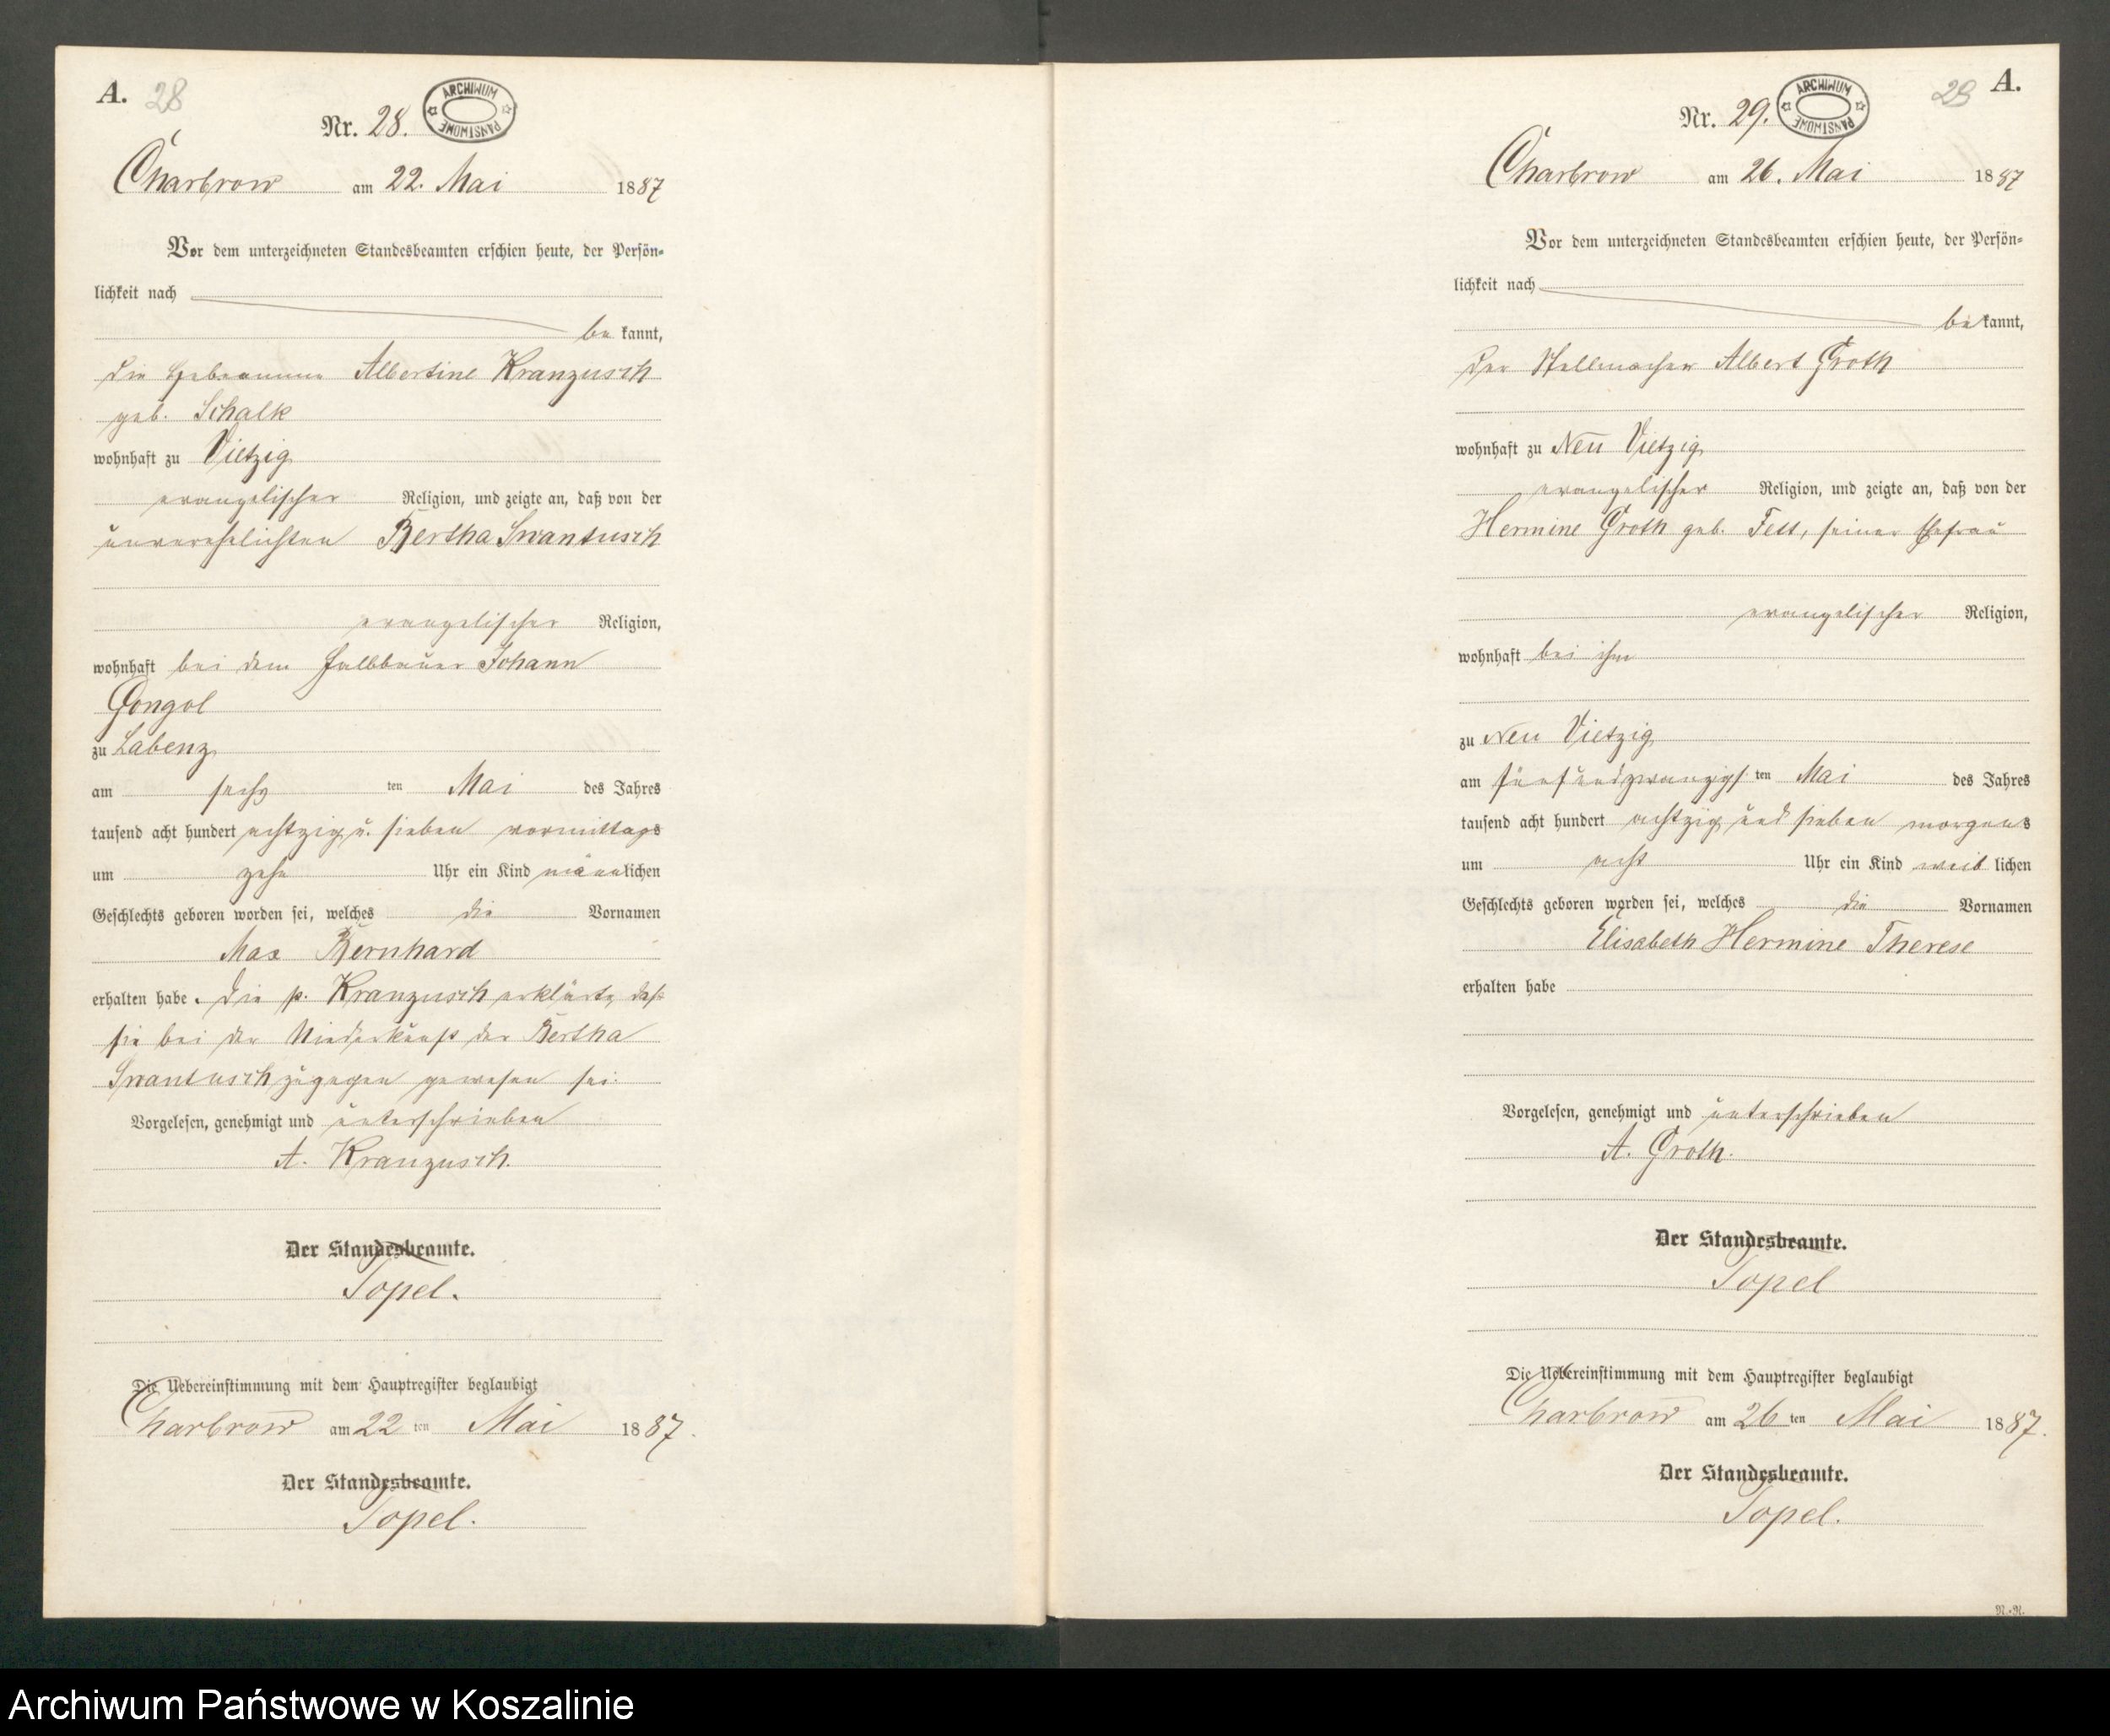 A. 28
ARCHIWUM PAŃSTWOWE
Nr. 28.
Charbrow am 22. Mai 1887
Vor dem unterzeichneten Standesbeamten erschien heute, der Persön-
lichkeit nach
be kannt,
die Hebeamme Albertine Kranzusch
geb. Schalk
wohnhaft zu Vietzig
evangelischer Religion, und zeigte an, daß von der
unverehelichten Bertha Swantusch
evangelischer Religion,
wohnhaft bei dem Halbbauer Johann
Gongol
zu Labenz
am sechs ten Mai des Jahres
tausend acht hundert achtzig u. sieben vormittags
um zehn Uhr ein Kind männlichen
Geschlechts geboren worden sei, welches die Vornamen
Max Bernhard
erhalten habe. Die p. Kranzusch erklärte, daß
sie bei der Niederkunft der Bertha
Swantusch zugegen gewesen sei.
Vorgelesen, genehmigt und unterschrieben
A. Kranzusch.
Der Standesbeamte.
Topel.
Die Uebereinstimmung mit dem Hauptregister beglaubigt
Charbrow am 22 ten Mai 1887.
Der Standesbeamte.
Topel.
29 A.
ARCHIWUM PAŃSTWOWE
Nr. 29.
Charbrow am 26. Mai 1887
Vor dem unterzeichneten Standesbeamten erschien heute, der Persön-
lichkeit nach
be kannt,
der Stellmacher Albert Groth
wohnhaft zu Neu Vietzig
evangelischer Religion, und zeigte an, daß von der
Hermine Groth geb. Fett, seiner Ehefrau
evangelischer Religion,
wohnhaft bei ihm
zu Neu Vietzig
am fünfundzwanzigs ten Mai des Jahres
tausend acht hundert achtzig und sieben morgens
um acht Uhr ein Kind weib lichen
Geschlechts geboren worden sei, welches die Vornamen
Elisabeth Hermine Therese
erhalten habe
Vorgelesen, genehmigt und unterschrieben
A. Groth.
Der Standesbeamte.
Topel
Die Uebereinstimmung mit dem Hauptregister beglaubigt
Charbrow am 26 ten Mai 1887.
Der Standesbeamte.
Topel.
Archiwum Państwowe w Koszalinie